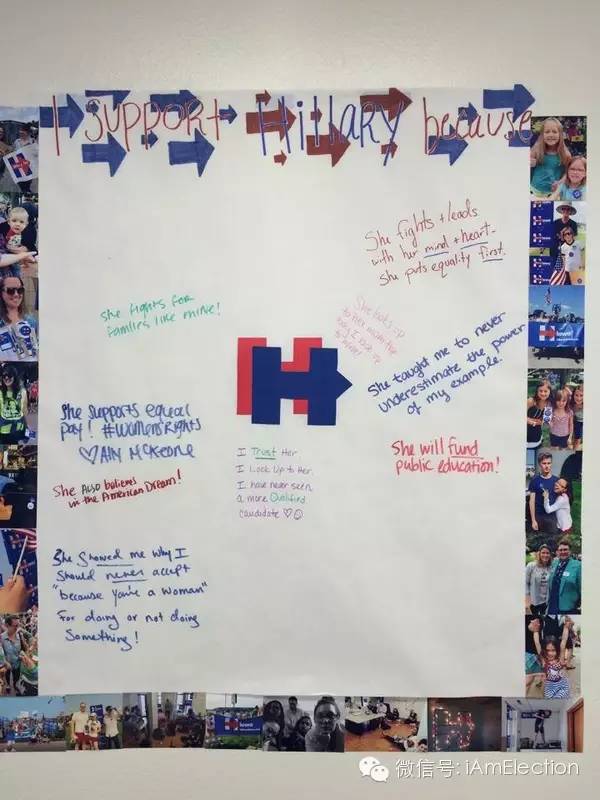 I Support Hillary because
She fights + leads
with her mind + heart -
she puts equality first.
She fights for
families like mine!
She looks up
to her mom the
way I look up
to mine!
She taught me to never
underestimate the power
of my example!
She supports equal
pay! #womensrights
♡ Ally McKeone
I Trust Her
I Look Up to Her.
I have never seen
a more Qualified
candidate ♡☺
She will fund
public education!
She Also believes
in the American Dream!
She Showed me why I
Should never accept
"because you're a woman"
For doing or not doing
Something!
H
微信号: iAmElection